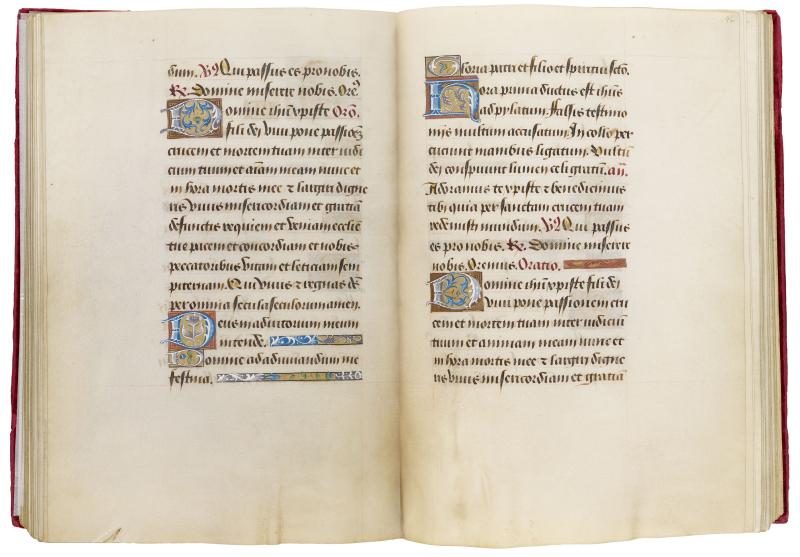 dium. V̷. Qui passus es pro nobis.
R̷. Domine miserere nobis. Orem9
Domine ihu xpiste Orõ.
fili dei viui pone passionẽ
crucem et mortem tuam inter iudi
cium tuum et aiãm meam nunc et
in hora mortis mee ⁊ largiri digne
ris viuis misericordiam et gratiã
defunctis requiem et veniam eccle
tue pacem et concordiam et nobis
peccatoribus vitam et leticiam sem
piternam. Qui viuis ⁊ regnas dẽ
per omnia secula seculorum amen.
Deus in adiutorium meum
intende.
Domine ad adiuuandum me
festina.
Gloria patri et filio et spiritui scto.
Hora prima ductus est ihus
ad pylatum. Falsis testimo
niis multum accusatum. In collo per
cuciunt manibus ligatum. Vultũ
dei conspuunt lumen celi gratũ. añ.
Adoramus te xpiste ⁊ benedicimus
tibi quia per sanctam crucem tuam
redemisti mundum. V̷. Qui passus
es pro nobis. R̷. Domine miserere
nobis. Oremus. Oratio.
Domine ihu xpiste fili dei
viui pone passionem cru
cem et mortem tuam inter iudiciũ
tuum et animam meam nunc et
in hora mortis mee ⁊ largiri digne
ris viuis misericordiam et gratiã